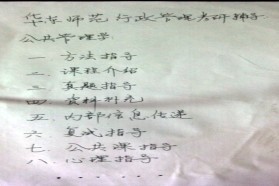 华东师范 行政管理考研辅导
公共管理学
一 方法指导
二 课程介绍
三 真题指导
四 资料补充
五 内部信息传递
六 复试指导
七 公共课指导
八 心理指导